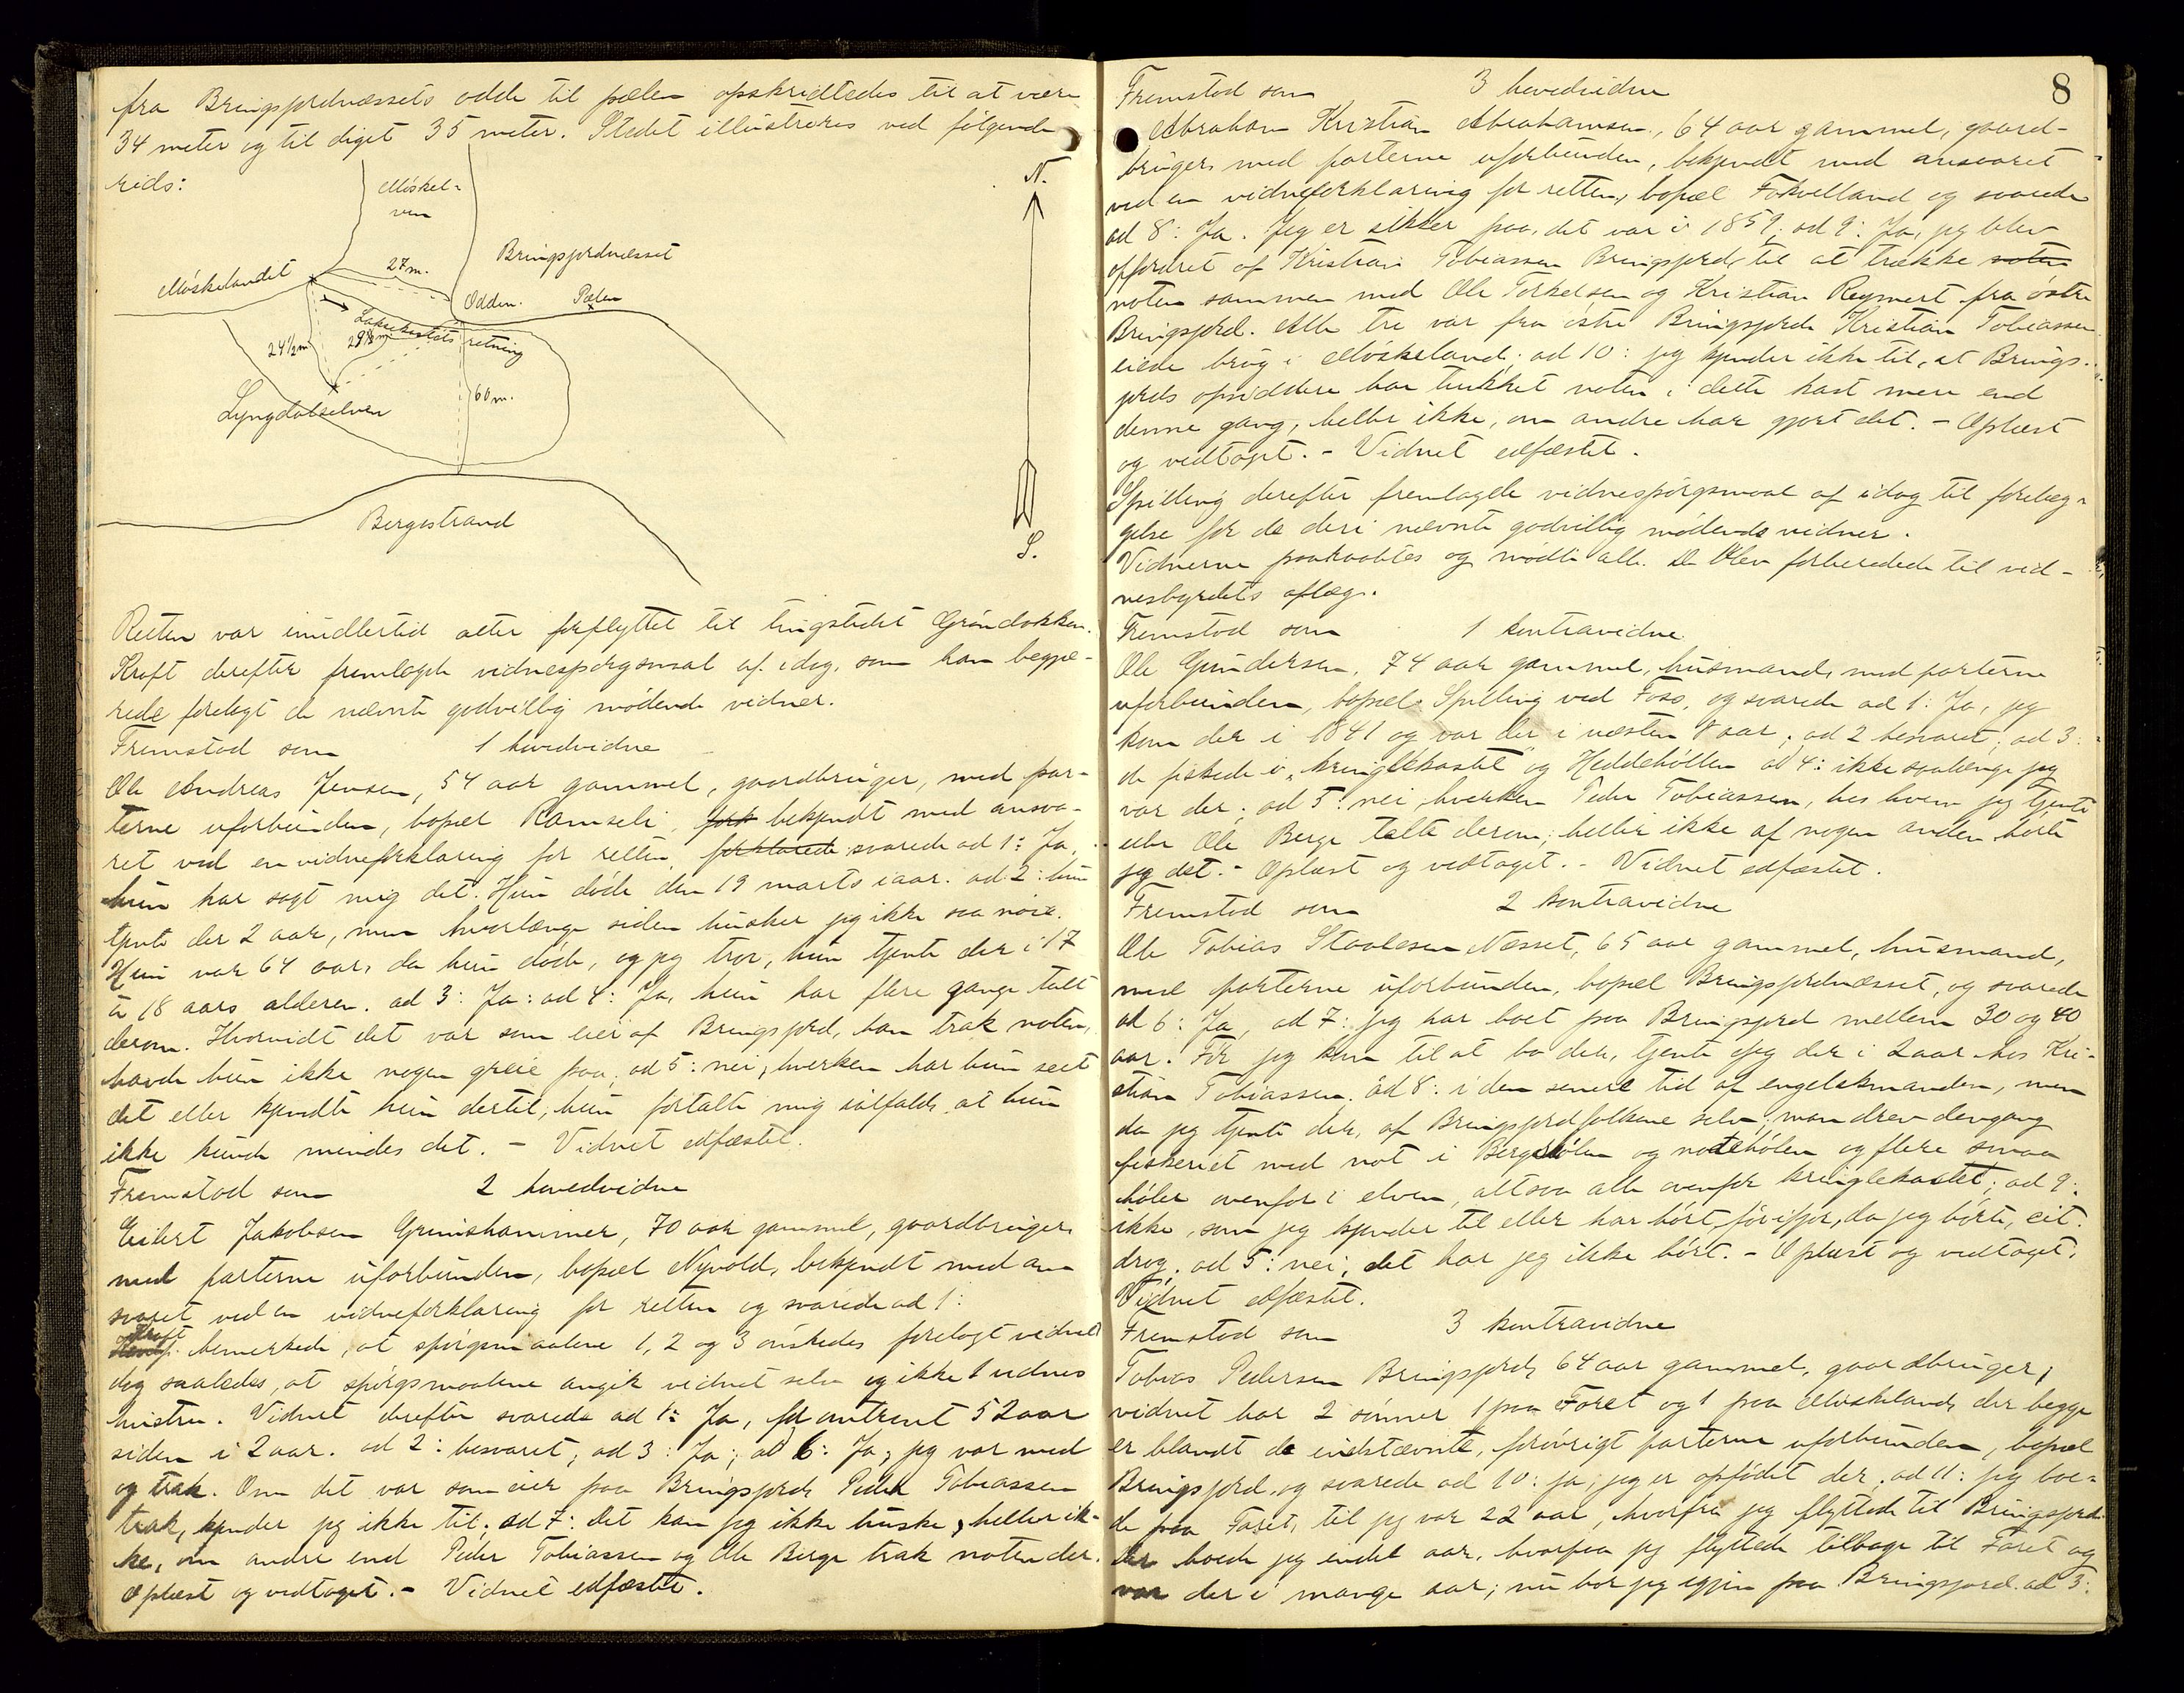 fra Bringsjordnæssets odde til pælen opskridtedes til at være
34 meter og til diget 35 meter. Stedet illustreres ved følgende
rids:
N.
Møskel-
ven
Bringsjordnæsset
27 m.
Møskelandet
Odden.
Pælen
Laksekastets retning
24 1/2 m
60 m.
Lyngdalselven
Bergestrand
S.
Retten var imidlertid atter forflyttet til tingstedet Grøndokken.
Kroft derefter fremlagde vidnespørgsmaal af idag, som han begjæ-
rede forelagt de nævnte godvillig mødende vidner.
Fremstod som 1 hovedvidne
Ole Andreas Jensen, 54 aar gammel, gaardbruger, med par-
terne uforbunden, bopæl Ramseli, fork bekjendt med ansva-
ret ved en vidneforklaring for retten, forklarede svarede ad 1: Ja,
hun har sagt mig det. Hun døde den 19 marts iaar. ad 2: hun
tjente der 2 aar, men hvorlænge siden husker jeg ikke saa nøie.
Hun var 64 aar, da hun døde, og jeg tror, hun tjente der i 17
à 18 aars alderen. ad 3: Ja: ad 4: Ja, hun har flere gange talt
derom. Hvorvidt det var som eier af Bringsjord, han trak noten,
havde hun ikke nogen greie paa, ad 5: nei, hverken har hun seet
det eller kjendte hun dertil, hun fortalte mig ialfald, at hun
ikke kunde mindes det. - Vidnet edfæstet.
Fremstod som 2 hovedvidne
Eilert Jakobsen Grumshammer, 70 aar gammel, gaardbruger,
med parterne uforbunden, bopæl Nyvold, bekjendt med an-
svaret ved en vidneforklaring for retten og svarede ad 1:
Kroft bemerkede, at spørgsmaalene 1, 2 og 3 ønskedes forelagt vidnet
dog saaledes, at spørgsmaalene angik vidnet selv og ikke 1 vidnes
hustru. Vidnet derefter svarede ad 1: Ja, for omtrent 52 aar
siden i 2 aar. ad 2: besvaret; ad 3: Ja; ad 6: Ja, jeg var med
og trak. Om det var som eier paa Bringsjord, Peder Tobiassen
trak, kjender jeg ikke til; ad 7: det kan jeg ikke huske, heller ik-
ke, om andre end Peder Tobiassen og Ole Berge trak noten der.
Oplæst og vedtaget. - Vidnet edfæstet.
8
Fremstod som 3 hovedvidne
Abraham Kristian Abrahamsen, 64 aar gammel, gaard-
bruger, med parterne uforbunden, bekjendt med ansvaret
ved en vidneforklaring for retten, bopæl Foskvelland og svarede
ad 8: Ja. Jeg er sikker paa, det var i 1859; ad 9: Ja, jeg blev
opfordret af Kristian Tobiassen Bringsjord til at trække noten
noten sammen med Ole Torkelsen og Kristian Reymert fra østre
Bringsjord. Alle tre var fra østre Bringsjord. Kristian Tobiassen
eiede brug i Møskeland; ad 10: jeg kjender ikke til, at Brings-
jords opsiddere har trukket noten i dette kast mere end
denne gang, heller ikke, om andre har gjort det. - Oplæst
og vedtaget. - Vidnet edfæstet.
Spilling derefter fremlagde vidnespørgsmaal af idag til forelæg-
gelse for de deri nævnte godvillig mødende vidner.
Vidnerne paakaabtes og mødte alle. De blev forberedede til vid-
nesbyrdets aflæg.
Fremstod som 1 kontravidne
Ole Gundersen, 74 aar gammel, husmand, med parterne
uforbunden, bopæl Spilling ved Foss, og svarede ad 1: Ja, jeg
kom der i 1841 og var der i næsten 8 aar; ad 2 besvaret; ad 3:
de fiskede i "kringlekastet" og Heddehøllen ad 4: ikke saalænge jeg
var der; ad 5: nei, hverken Peder Tobiassen, hos hvem jeg tjente
eller Ole Berge talte derom; heller ikke af nogen anden hørte
jeg det. - Oplæst og vedtaget. - Vidnet edfæstet.
Fremstod som 2 kontravidne
Ole Tobias Staalesen Næsset, 65 aar gammel, husmand,
med parterne uforbunden, bopæl Bringsjordnæsset, og svarede
ad 6: Ja, ad 7: jeg har boet paa Bringsjord mellem 30 og 40
aar. Før jeg kom til at bo der, tjente jeg der i 2 aar hos Kri-
stian Tobiassen. ad 8: i den senere tid af engelskmanden, men
da jeg tjente der, af Bringsjordfolkene selv; man drev dengang
fiskeriet med not i Bergehølen og notehølen og flere smaa
høler ovenfor i elven, altsaa alle ovenfor kringlekastet; ad 9:
ikke, som jeg kjender til eller har hørt, før ifjor, da jeg hørte, eit
drog. ad 5: nei, det har jeg ikke hørt. - Oplæst og vedtaget.
Vidnet edfæstet.
Fremstod som 3 kontravidne
Tobias Pedersen Bringsjord, 64 aar gammel, gaardbruger,
vidnet har 2 sønner 1 paa Faret og 1 paa Møskeland, der begge
er blandt de indstævnte, forøvrigt parterne uforbunden, bopæl
Bringsjord, og svarede ad 10: ja, jeg er opfødet der, ad 11: jeg boe-
de paa Faret, til jeg var 22 aar, hvorfra jeg flyttede til Bringsjord.
Der boede jeg endel aar, hvorpaa jeg flyttede tilbage til Faret og
var der i mange aar; nu bor jeg igjen paa Bringsjord. ad 3: